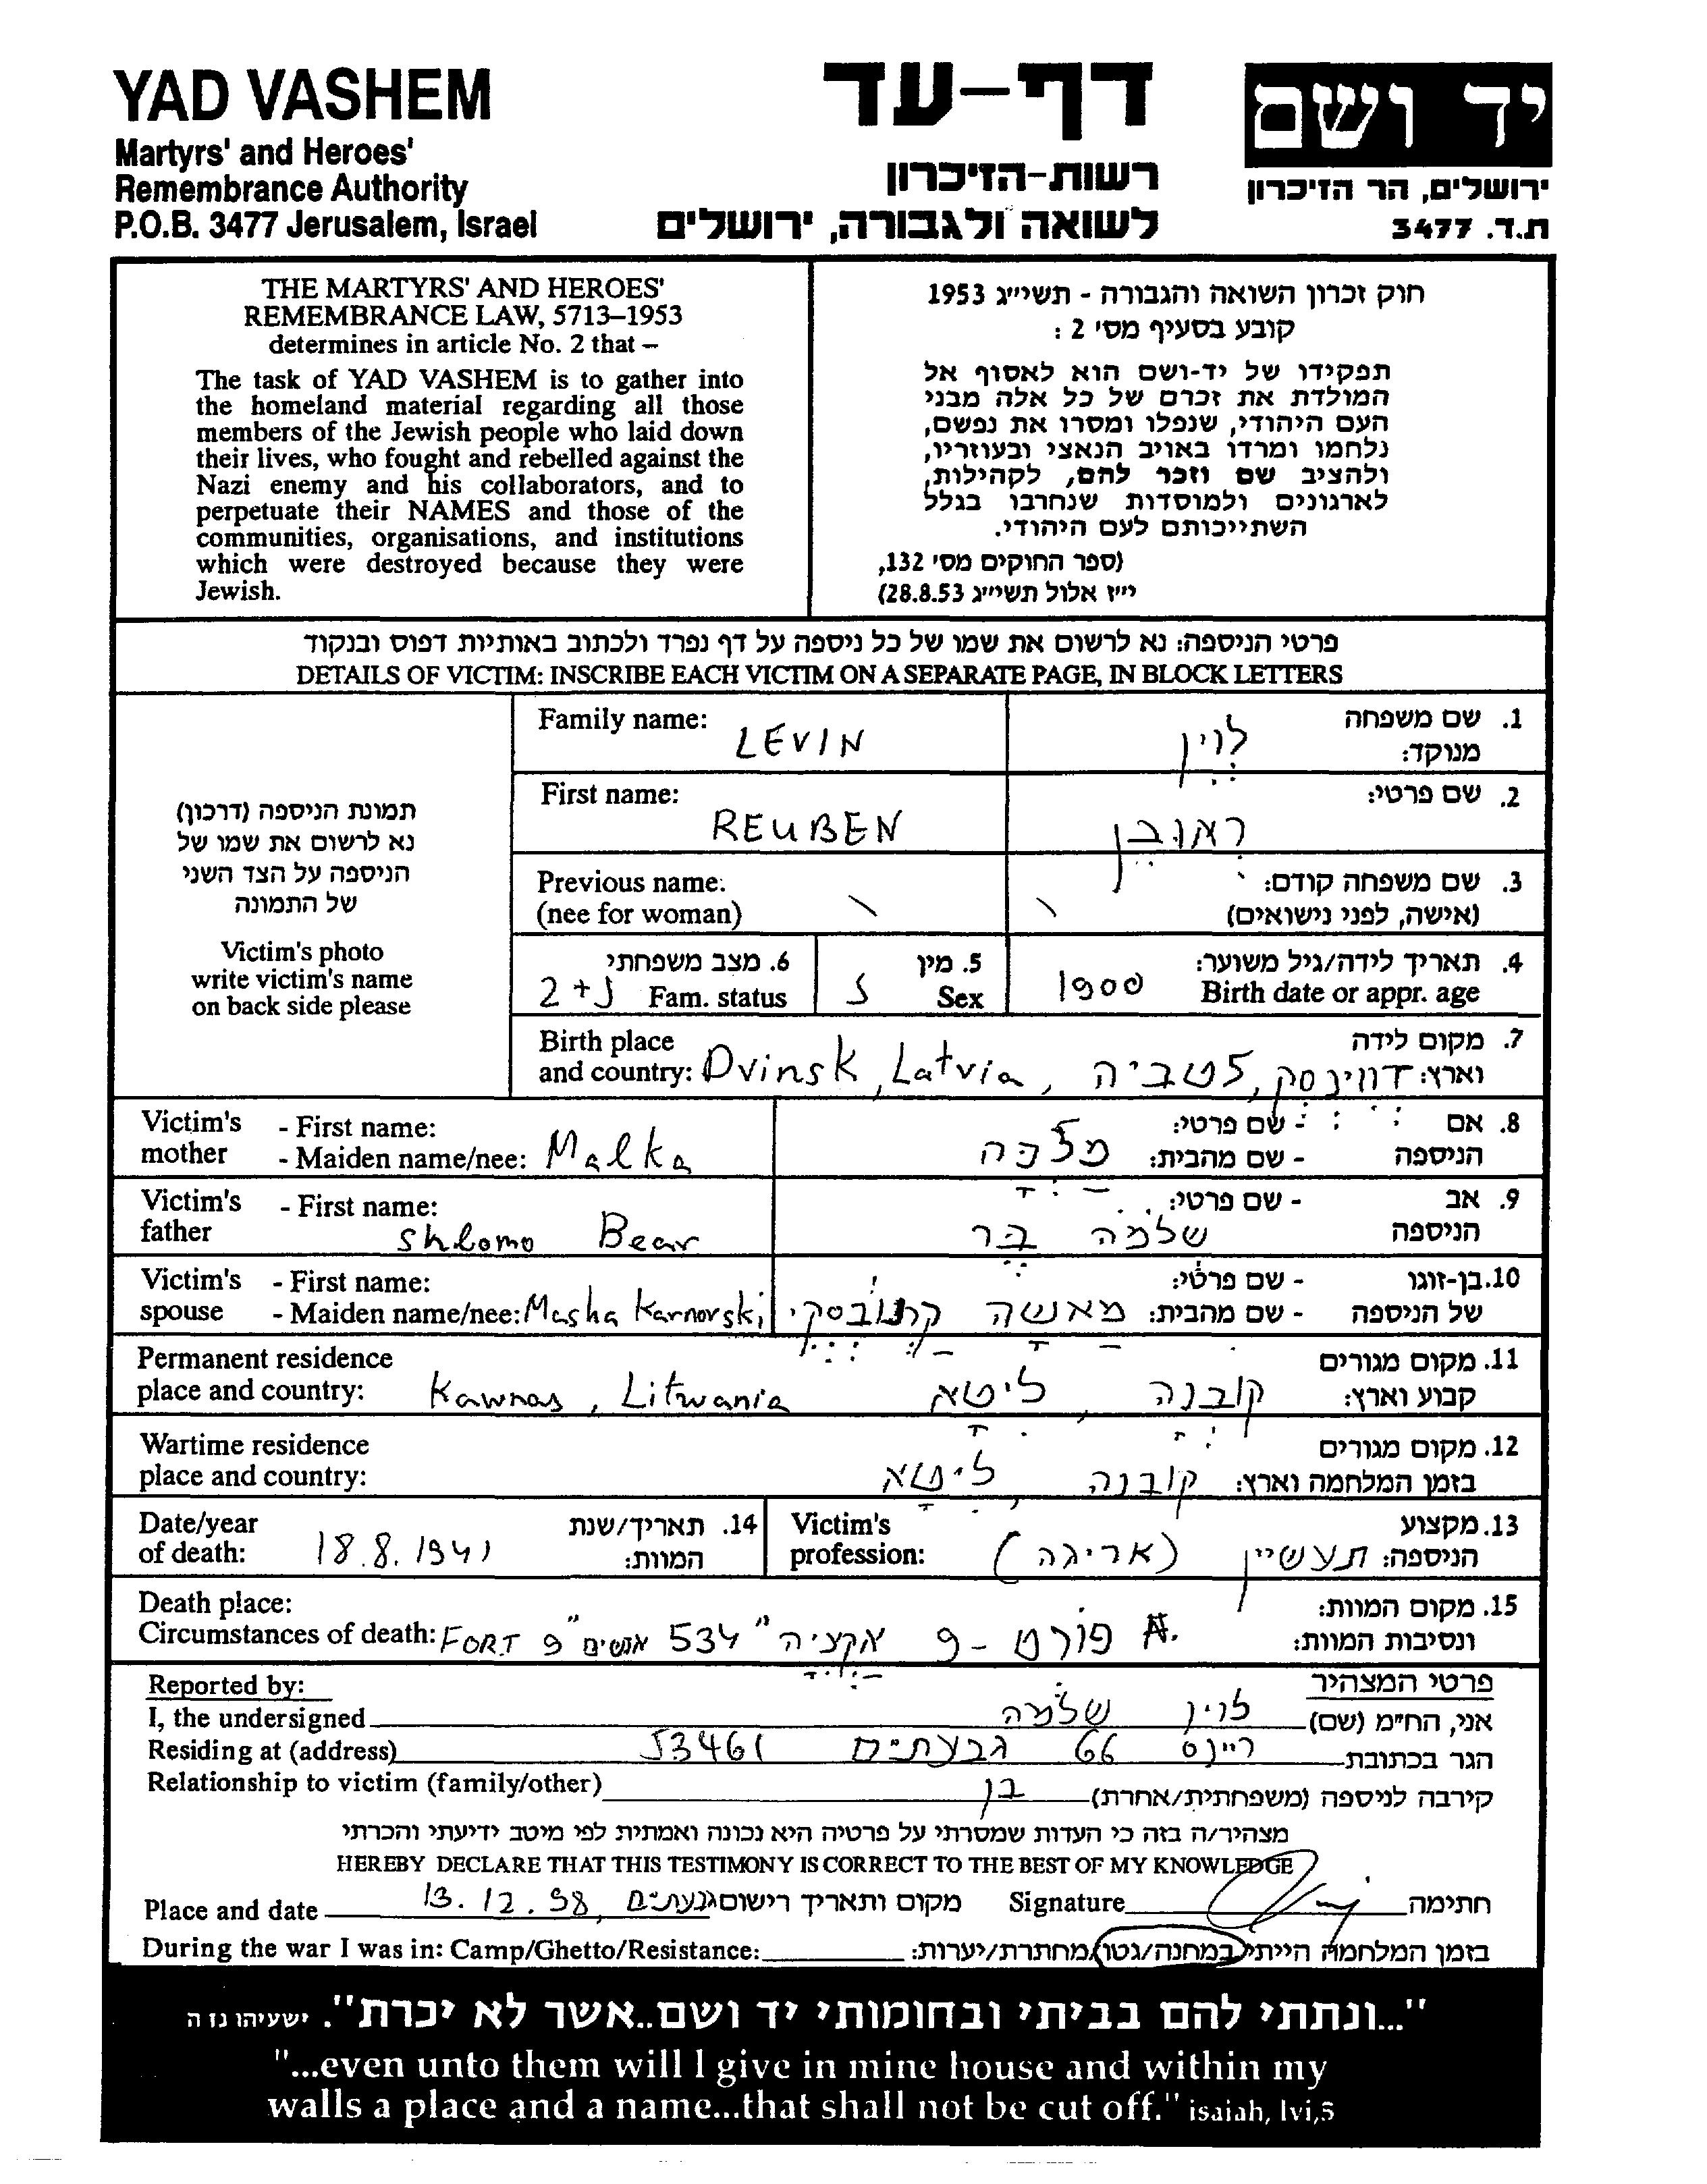 YAD VASHEM
Martyrs' and Heroes'
Remembrance Authority
P.O.B. 3477 Jerusalem, Israel
דף-עד
רשות-הזיכרון
לשואה ולגבורה, ירושלים
יד ושם
ירושלים, הר הזיכרון
ת.ד. 3477
THE MARTYRS' AND HEROES'
REMEMBRANCE LAW, 5713–1953
determines in article No. 2 that –
The task of YAD VASHEM is to gather into
the homeland material regarding all those
members of the Jewish people who laid down
their lives, who fought and rebelled against the
Nazi enemy and his collaborators, and to
perpetuate their NAMES and those of the
communities, organisations, and institutions
which were destroyed because they were
Jewish.
חוק זכרון השואה והגבורה - תשי״ג 1953
קובע בסעיף מס׳ 2 :
תפקידו של יד-ושם הוא לאסוף אל
המולדת את זכרם של כל אלה מבני
העם היהודי, שנפלו ומסרו את נפשם,
נלחמו ומרדו באויב הנאצי ובעוזריו,
ולהציב שם וזכר להם, לקהילות,
לארגונים ולמוסדות שנחרבו בגלל
השתייכותם לעם היהודי.
(ספר החוקים מס׳ 132,
י״ז אלול תשי״ג 28.8.53)
פרטי הניספה: נא לרשום את שמו של כל ניספה על דף נפרד ולכתוב באותיות דפוס ובנקוד
DETAILS OF VICTIM: INSCRIBE EACH VICTIM ON A SEPARATE PAGE, IN BLOCK LETTERS
תמונת הניספה (דרכון)
נא לרשום את שמו של
הניספה על הצד השני
של התמונה
Victim's photo
write victim's name
on back side please
Family name: LEVIN
1. שם משפחה
מנוקד: לוין
First name: REUBEN
2. שם פרטי: ראובן
Previous name:
(nee for woman) \
3. שם משפחה קודם: \
(אישה, לפני נישואים)
6. מצב משפחתי
Fam. status 2+נ
5. מין
Sex ז
4. תאריך לידה/גיל משוער:
Birth date or appr. age 1900
Birth place
and country: Dvinsk, Latvia,
7. מקום לידה
וארץ: דווינסק, לטביה
Victim's - First name:
mother - Maiden name/nee: Malka
8. אם - שם פרטי:
הניספה - שם מהבית: מלכה
Victim's - First name:
father Shlomo Bear
9. אב - שם פרטי:
הניספה שלמה בר
Victim's - First name:
spouse - Maiden name/nee: Masha Karnovski
10. בן-זוגו - שם פרטי:
של הניספה - שם מהבית: מאשה קרנובסקי
Permanent residence
place and country: Kawnas, Litwania
11. מקום מגורים
קבוע וארץ: קובנה, ליטא
Wartime residence
place and country:
12. מקום מגורים
בזמן המלחמה וארץ: קובנה, ליטא
Date/year
of death: 18.8.1941
14. תאריך/שנת
המוות:
Victim's
profession:
13. מקצוע
הניספה: תעשיין (אריגה)
Death place:
Circumstances of death:
15. מקום המוות:
ונסיבות המוות: פורט - 9 אקציה "534 אנשים" FORT 9
Reported by:
פרטי המצהיר
I, the undersigned
אני, הח״מ (שם) לוין שלמה
Residing at (address)
הגר בכתובת ריינס 66 גבעתים 53461
Relationship to victim (family/other)
קירבה לניספה (משפחתית/אחרת) בן
מצהיר/ה בזה כי העדות שמסרתי על פרטיה היא נכונה ואמתית לפי מיטב ידיעתי והכרתי
HEREBY DECLARE THAT THIS TESTIMONY IS CORRECT TO THE BEST OF MY KNOWLEDGE
Place and date
מקום ותאריך רישום גבעתים, 13.12.98
Signature
חתימה
During the war I was in: Camp/Ghetto/Resistance:
בזמן המלחמה הייתי במחנה/גטו/מחתרת/יערות:
"...ונתתי להם בביתי ובחומותי יד ושם..אשר לא יכרת". ישעיהו נז ה
"...even unto them will I give in mine house and within my
walls a place and a name...that shall not be cut off." isaiah, lvi,5